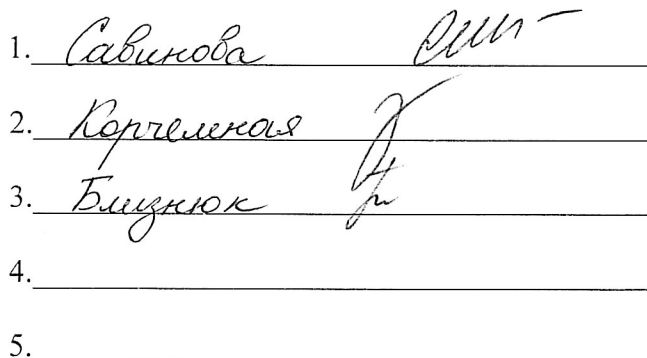 1. Савинова
2. Корчемная
3. Близнюк
4.
5.